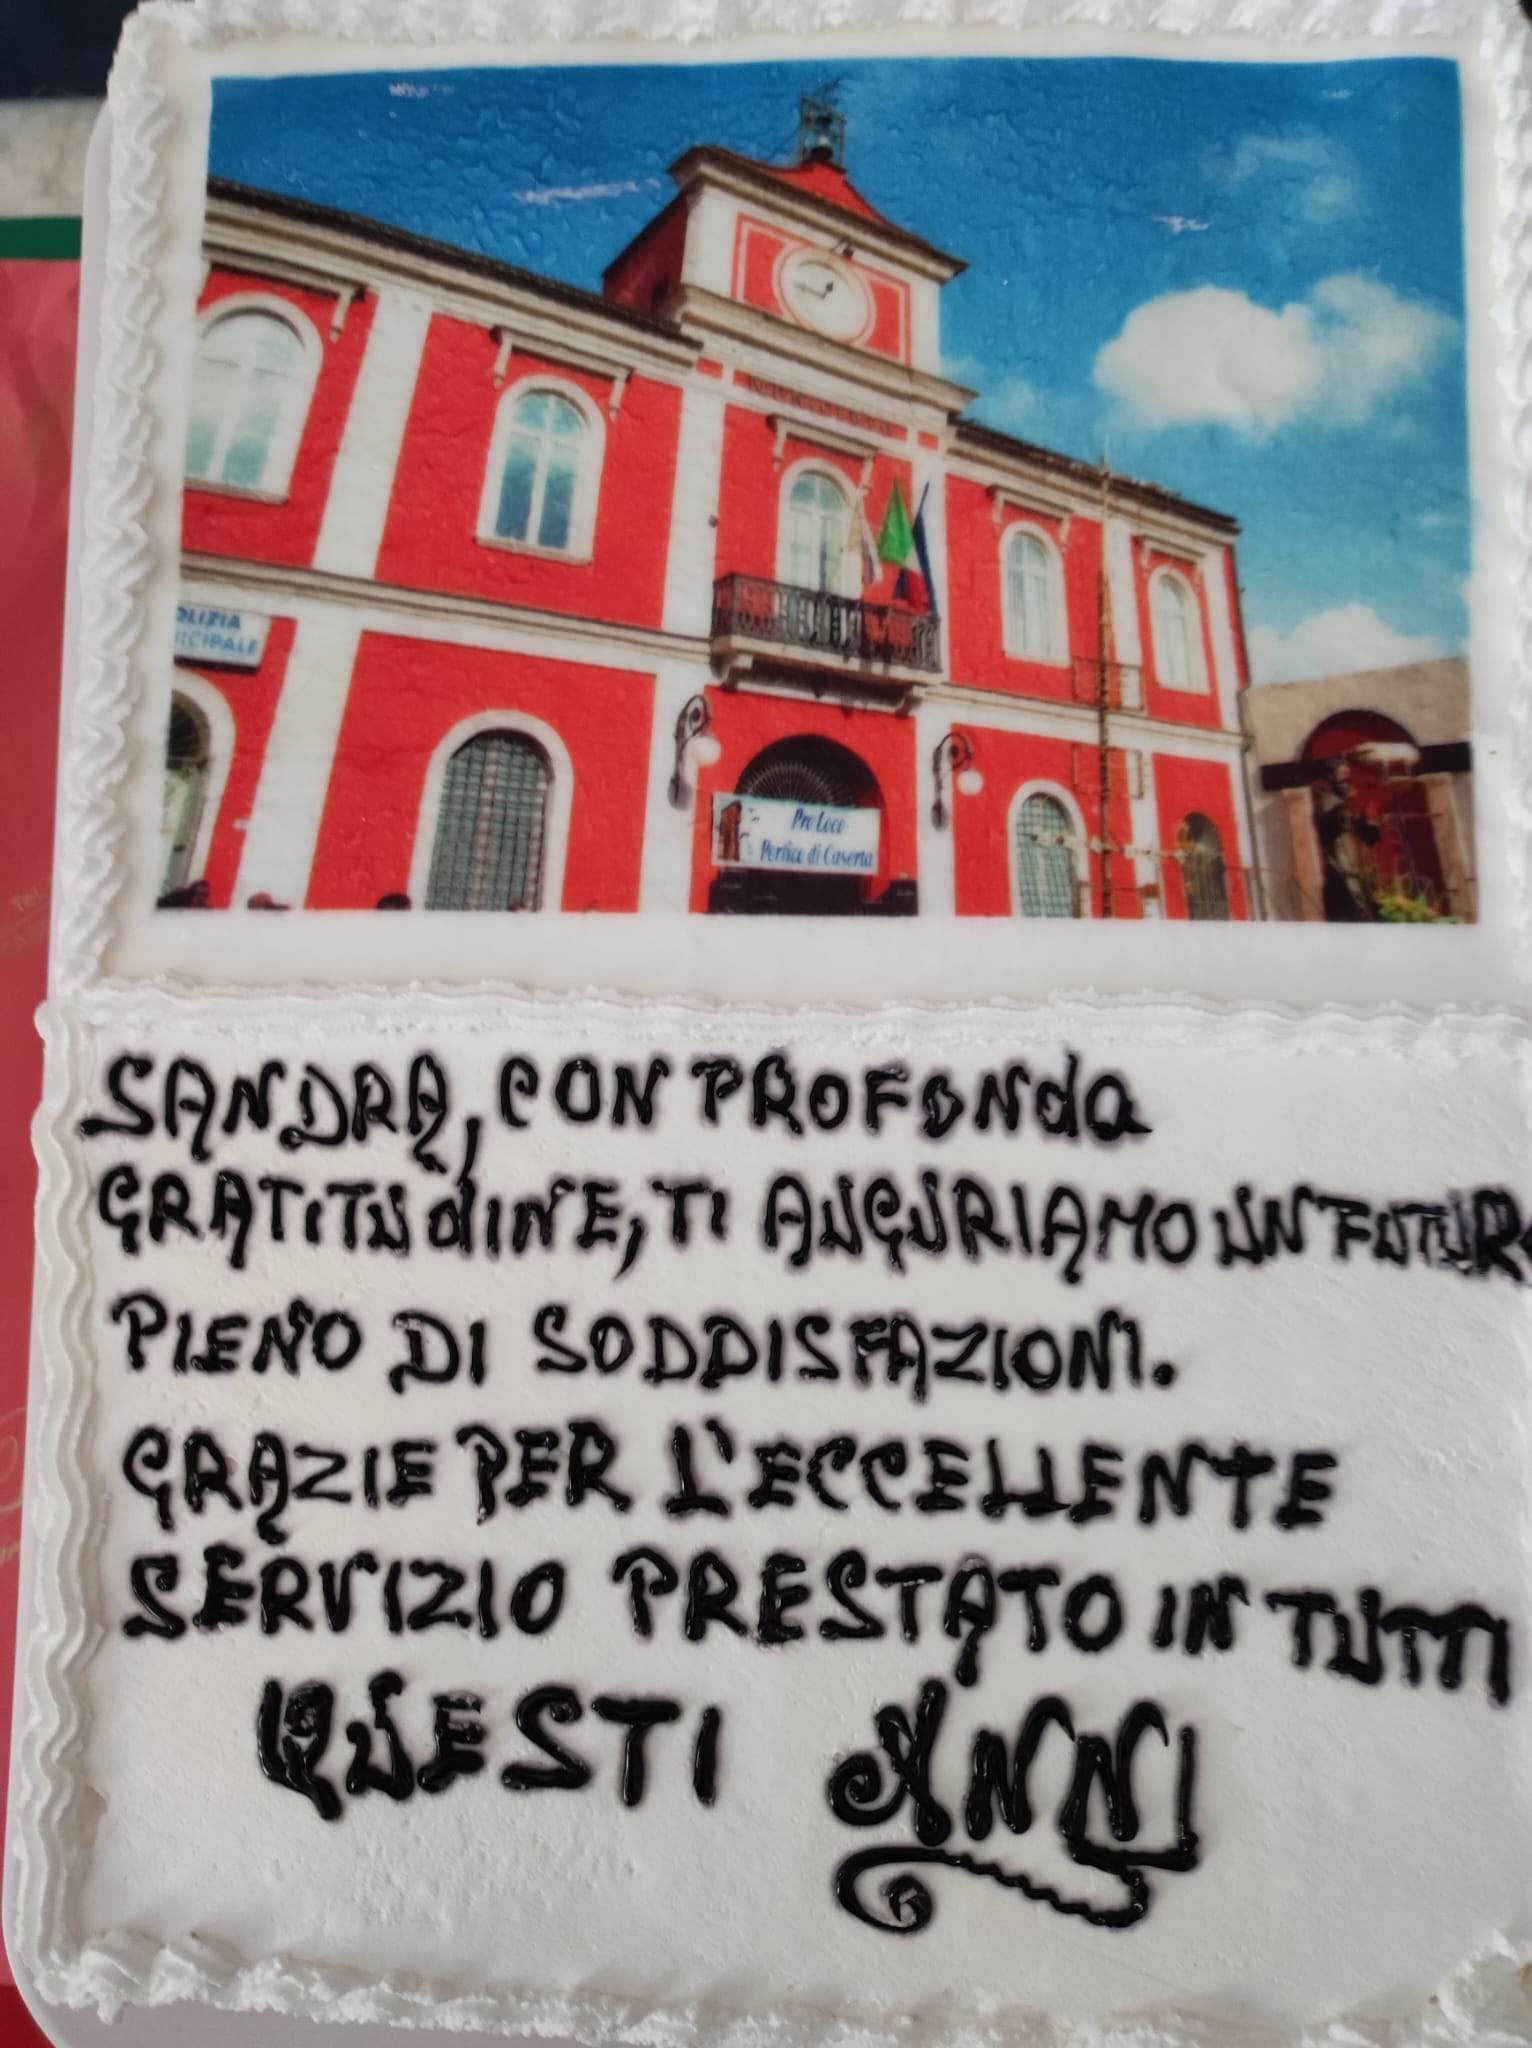 POLIZIA
MUNICIPALE
Pro Loco
Portico di Caserta
SANDRA, CON PROFONDA
GRATITUDINE, TI AUGURIAMO UN FUTURO
PIENO DI SODDISFAZIONI.
GRAZIE PER L'ECCELLENTE
SERVIZIO PRESTATO IN TUTTI
QUESTI ANNI